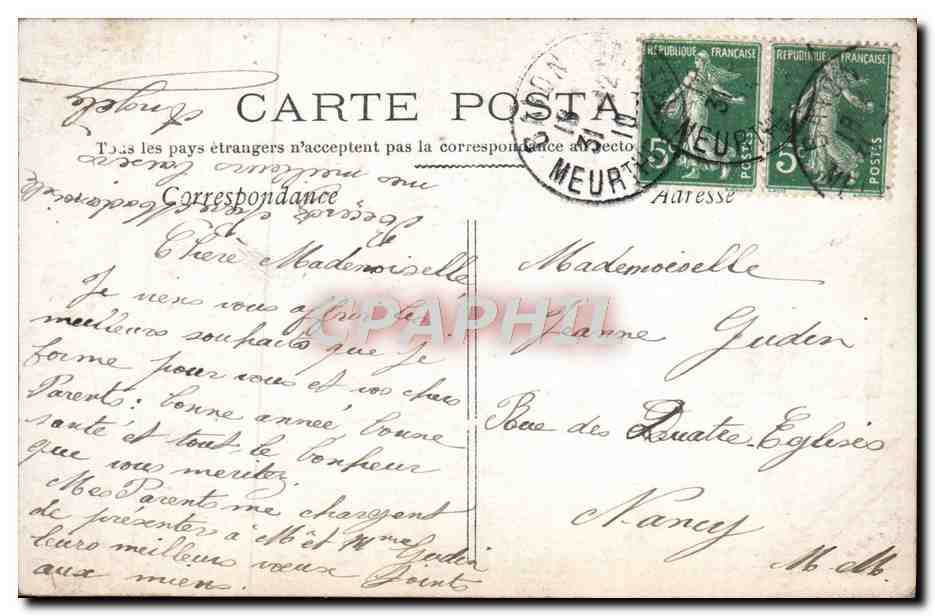 CARTE POSTA
Tous les pays étrangers n'acceptent pas la correspondance au recto
Correspondance
Adresse
REPUBLIQUE FRANÇAISE
5
POSTES
REPUBLIQUE FRANÇAISE
5
POSTES
MEURTH
MEURT
Chère Mademoiselle
Je viens vous offrir les
meilleurs souhaits que je
forme pour vous et vos chers
Parents: bonne année, bonne
santé et tout le bonheur
que vous meritez.
Mes Parents me chargent
de présenter à Mr et Mme Gudin
leurs meilleurs vœux joints
aux miens.
mes meilleurs baisers
Angèle
Mademoiselle
Jeanne Gudin
Rue des Quatre-Eglises
Nancy
M. M.
CPAPHIL